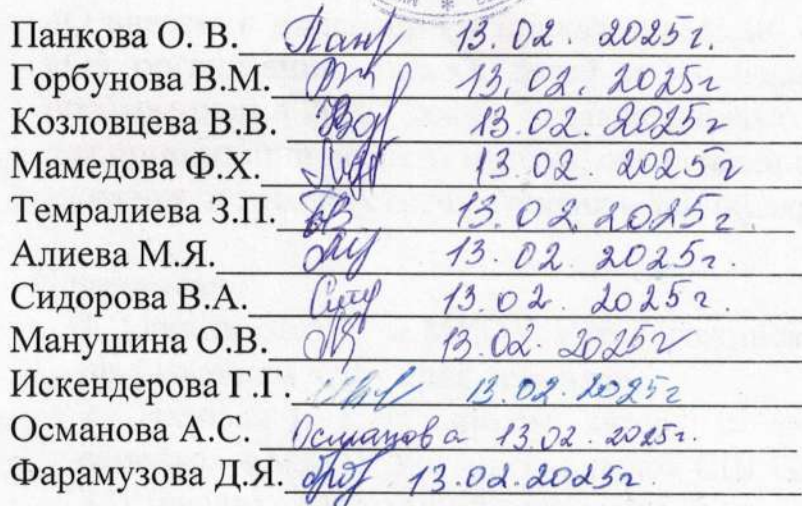 Панкова О. В. 13.02.2025г.
Горбунова В.М. 13.02.2025г
Козловцева В.В. 13.02.2025г
Мамедова Ф.Х. 13.02.2025г
Темралиева З.П. 13.02.2025г.
Алиева М.Я. 13.02.2025г.
Сидорова В.А. 13.02.2025г.
Манушина О.В. 13.02.2025г
Искендерова Г.Г. 13.02.2025г
Османова А.С. Османова 13.02.2025г.
Фарамузова Д.Я. 13.02.2025г.